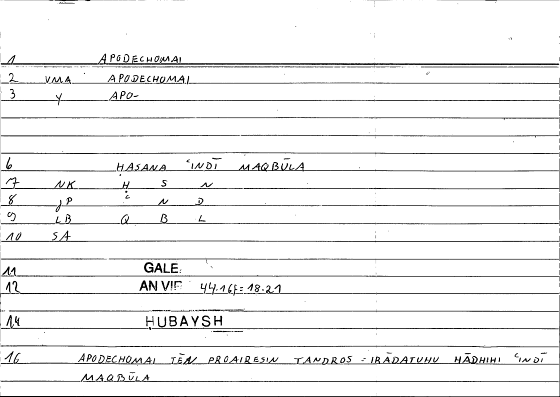 1 APODECHOMAI
2 VMA APODECHOMAI
3 y APO-
6 HASANA ʿINDĪ MAQBŪLA
7 NK H S N
8 JP ʿ N D
9 LB Q B L
10 SA
11 GALE.
12 AN VIR 44.16f = 18.21
14 HUBAYSH
16 APODECHOMAI TĒN PROAIRESIN TANDROS = IRĀDATUHU HĀDHIHI ʿINDĪ
MAQBŪLA